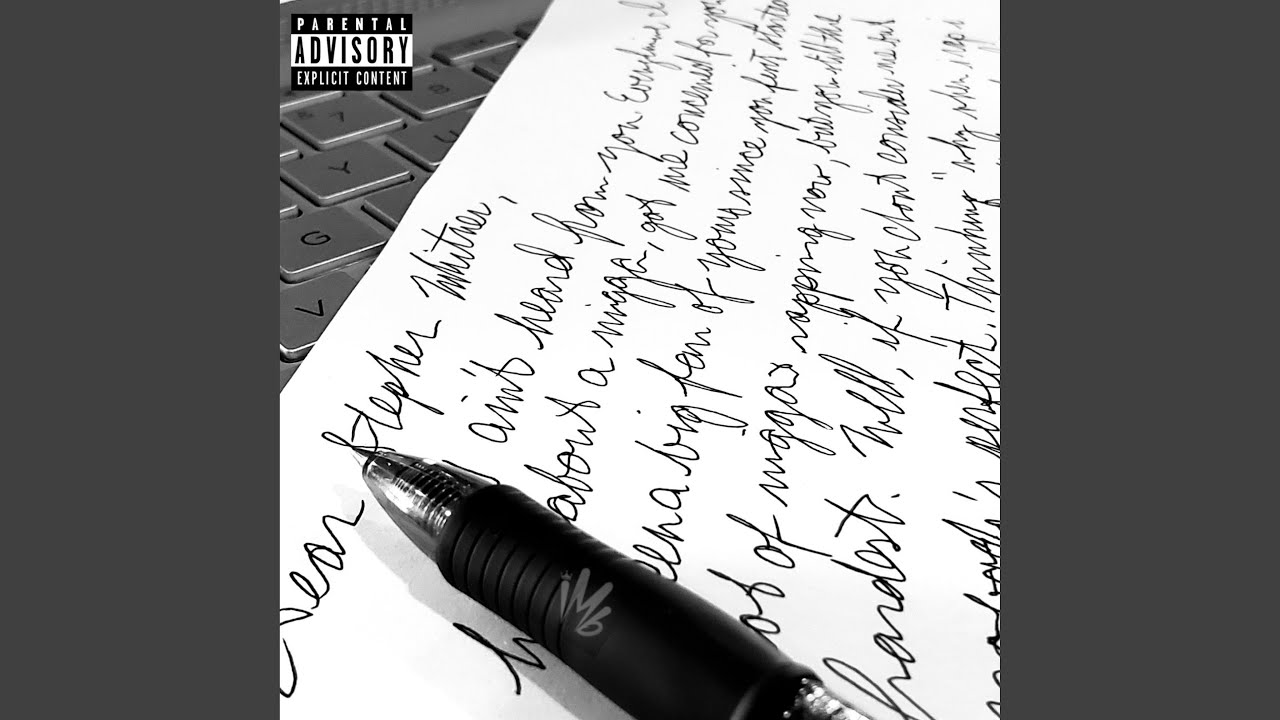 PARENTAL
ADVISORY
EXPLICIT CONTENT
8
7
Y
U
G
V
Dear Stepher Whitner,
aint heard from you. Everytime I
about a nigga, got me concerned for you
een a big fan of yours since you first started
lot of niggas rapping now, but you still the
hardest. Well, if you dont consider me but
perfect. Thinking "why when
iMG